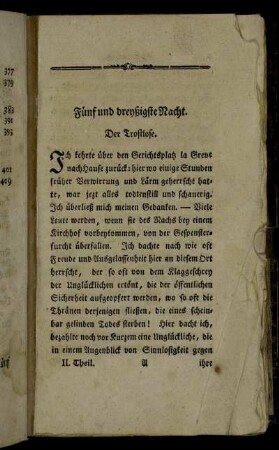 377
379
383
393
401
409
Fünf und dreyßigste Nacht.
Der Trostlose.
Ich kehrte über den Gerichtsplatz la Greve
nach Hause zurück: hier wo einige Stunden
früher Verwirrung und Lärm geherrscht hat-
te, war jezt alles todtenstill und schauerig.
Ich überließ mich meinen Gedanken. — Viele
Leute werden, wenn sie des Nachs bey einem
Kirchhof vorbeykommen, von der Gespenster-
furcht überfallen. Ich dachte nach wie oft
Freude und Ausgelassenheit hier an diesem Ort
herrscht, der so oft von dem Klaggeschrey
der Unglücklichen ertönt, die der öffentlichen
Sicherheit aufgeopfert werden, wo so oft die
Thränen derjenigen fließen, die eines schein-
bar gelinden Todes sterben! Hier dacht ich,
bezahlte noch vor Kurzem eine Unglückliche, die
in einem Augenblick von Sinnlosigkeit gegen
II. Theil. A ihre